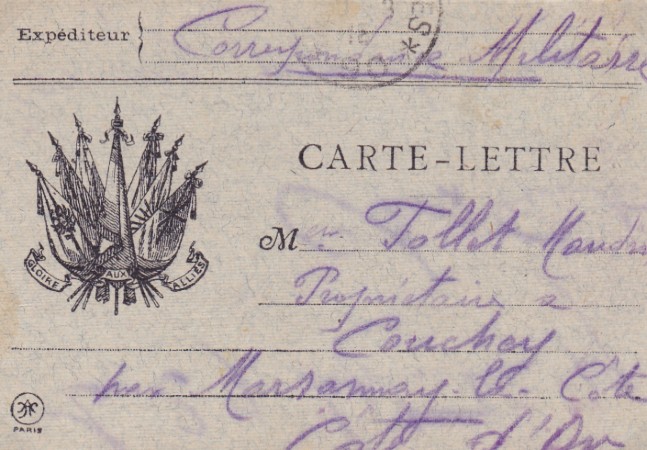 Expéditeur Correspondance Militaire
CARTE-LETTRE
GLOIRE AUX ALLIÉS
M Tollet
Propriétaire a
Couchey
par Marsannay-la-Cote
Cote d'Or
PARIS